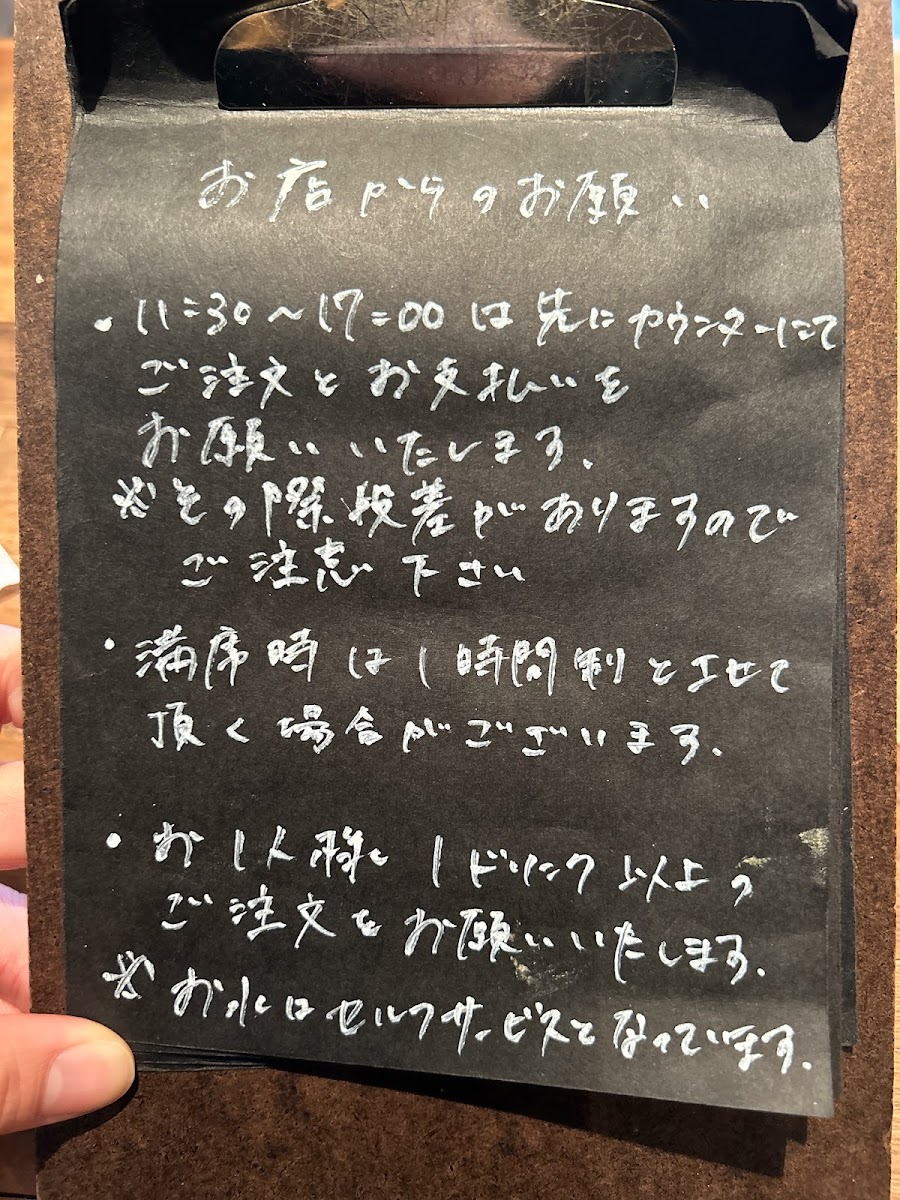 お店からのお願い
・11:30〜17:00は先にカウンターにて
ご注文とお支払いを
お願いいたします。
※その際段差がありますので
ご注意下さい
・満席時は1時間制とさせて
頂く場合がございます。
・お1人様1ドリンク以上の
ご注文をお願いいたします。
※お水はセルフサービスとなっています。